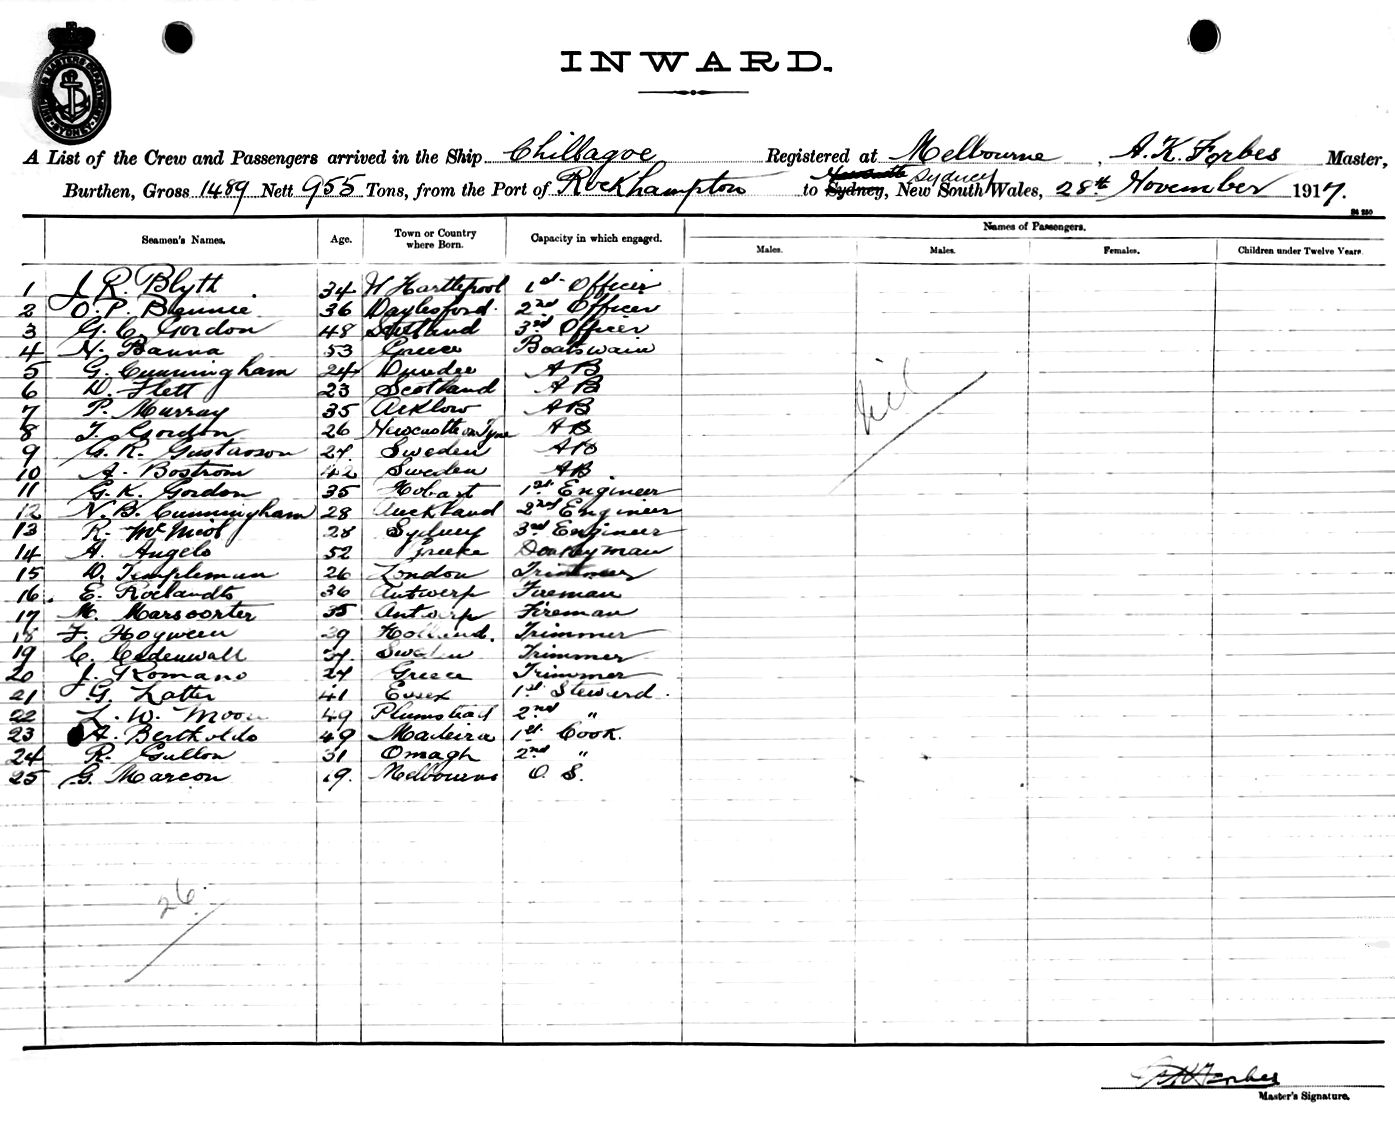 INWARD.
A List of the Crew and Passengers arrived in the Ship Chillagoe Registered at Melbourne, A. K. Forbes Master,
Burthen, Gross 1489 Nett 955 Tons, from the Port of Rockhampton to Sydney, Sydney New South Wales, 28th November 1917.
Seamen's Names. Age. Town or Country where Born. Capacity in which engaged. Names of Passengers.
Males. Males. Females. Children under Twelve Years.
1 J. R. Blyth 34 W Hartlepool 1st Officer
2 O. P. Bennie 36 Daylesford 2nd Officer
3 G. C. Gordon 48 Scotland 3rd Officer
4 N. Banna 53 Greece Boatswain
5 G. Cunningham 24 Dundee A B
6 D. Flett 23 Scotland A B
7 P. Murray 35 Arklow A B
8 T. Gordon 26 Newcastle on Tyne A B
9 G. R. Gustavson 24 Sweden A B
10 A. Bostrom 42 Sweden A B
11 G. K. Gordon 35 Hobart 1st Engineer
12 N. B. Cunningham 28 Auckland 2nd Engineer
13 R. McNicol 28 Sydney 3rd Engineer
14 A. Angelo 52 Greece Donkeyman
15 D. Templeman 26 London Trimmer
16 E. Roelandts 36 Antwerp Fireman
17 M. 35 Antwerp Fireman
18 F. Hogween 39 Holland. Trimmer
19 C. Cedenwall 34 Sweden Trimmer
20 J. Romano 24 Greece Trimmer
21 G. Latter 41 Essex 1st Steward
22 L. W. Moon 49 Plumstead 2nd "
23 A. Bertholdo 49 Madeira 1st Cook.
24 R. Gullon 31 Omagh 2nd "
25 G. Marcon 19 Melbourne O. S.
Nil
26
A K Forbes
Master's Signature.